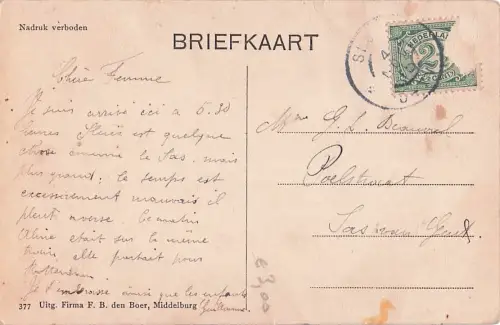 Nadruk verboden
BRIEFKAART
Chère Femme
Je suis arrivé ici a 6.30
Sluis est quelque
chose comme le Sas, mais
plus grand; le temps est
excessivement mauvais il
pleut
Aline etait sur le même
train, elle partait pour
Rotterdam.
Je t'embrasse ainsi que les enfants
Guillaume
377 Uitg. Firma F. B. den Boer, Middelburg
Mme G. L.
Poelstraat
Sas van Gent.
€ 3,00
2